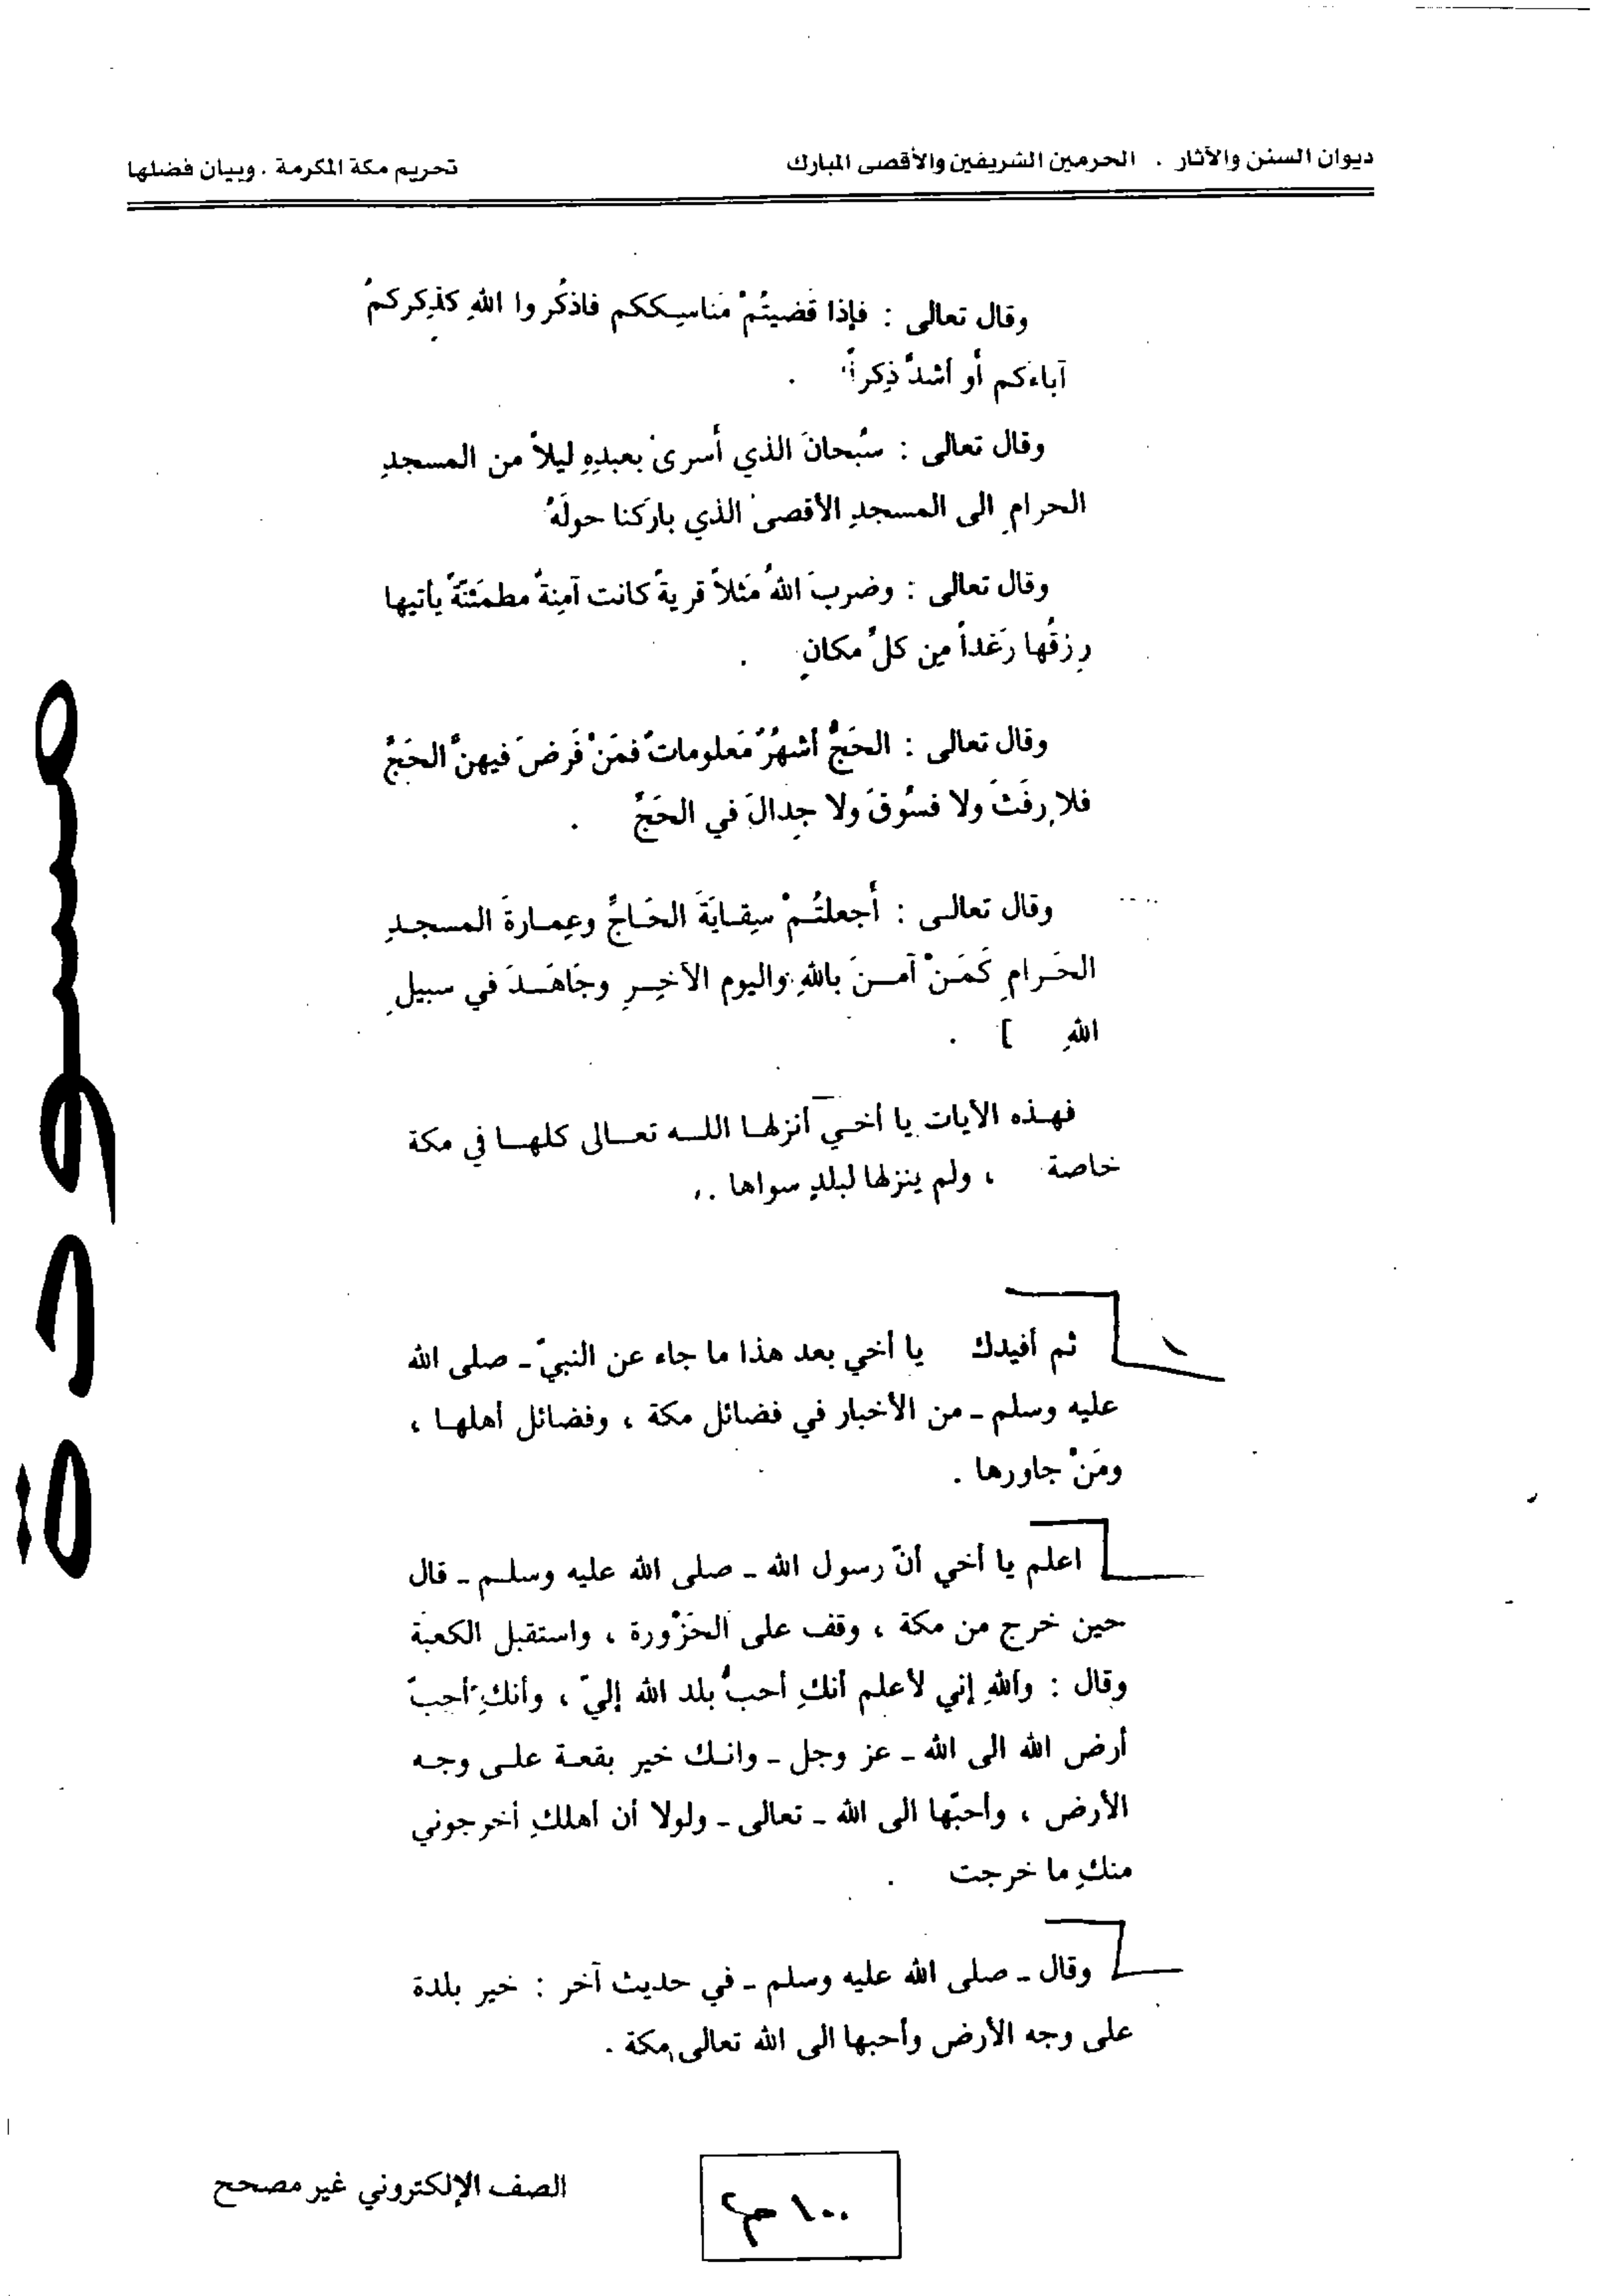 ديوان السنن والآثار . الحرمين الشريفين والأقصى المبارك
تحريم مكة المكرمة . وبيان فضلها
وقال تعالى : فإذا قَضيتُمْ مَناسِككم فاذكُروا اللهِ كذِكرِكمُ
آباءَكم أو أشدَّ ذِكراً .
وقال تعالى : سُبحانَ الذي أَسرىٰ بعبدِهِ ليلاً من المسجدِ
الحرامِ الى المسجدِ الأقصىٰ الذي بارَكنا حولَهُ
وقال تعالى : وضربَ اللهُ مَثلاً قريةً كانت آمِنةً مطمَئنّةً يأتيها
رِزقُها رَغداً مِن كلِّ مكانٍ .
وقال تعالى : الحَجُّ أشهُرٌ مَعلوماتٌ فمَنْ فَرضَ فيهنَّ الحَجَّ
فلا رفَثَ ولا فسُوقَ ولا جِدالَ في الحَجِّ .
وقال تعالى : أَجعلتُمْ سِقايَةَ الحَاجِّ وعِمارةَ المسجدِ
الحَرامِ كَمَنْ آمنَ باللهِ واليوم الآخِرِ وجَاهَدَ في سبيلِ
اللهِ ] .
فهذه الآيات يا أخي أنزلها الله تعالى كلها في مكة
خاصة ، ولم ينزلها لبلدٍ سواها ..
ثم أفيدك يا أخي بعد هذا ما جاء عن النبيّ ـ صلى الله
عليه وسلم ـ من الأخبار في فضائل مكة ، وفضائل أهلها ،
ومَنْ جاورها .
اعلم يا أخي أنّ رسول الله ـ صلى الله عليه وسلم ـ قال
حين خرج من مكة ، وقف على الحَزْورة ، واستقبل الكعبة
وقال : واللهِ إني لأعلم أنكِ أحبُّ بلد الله إليّ ، وأنكِ أحبّ
أرض الله الى الله ـ عز وجل ـ وانك خير بقعة على وجه
الأرض ، وأحبّها الى الله ـ تعالى ـ ولولا أن أهلكِ أخرجوني
منكِ ما خرجت .
وقال ـ صلى الله عليه وسلم ـ في حديث آخر : خير بلدة
على وجه الأرض وأحبها الى الله تعالى مكة .
مسودة
١٠٠ م٢
الصف الإلكتروني غير مصحح